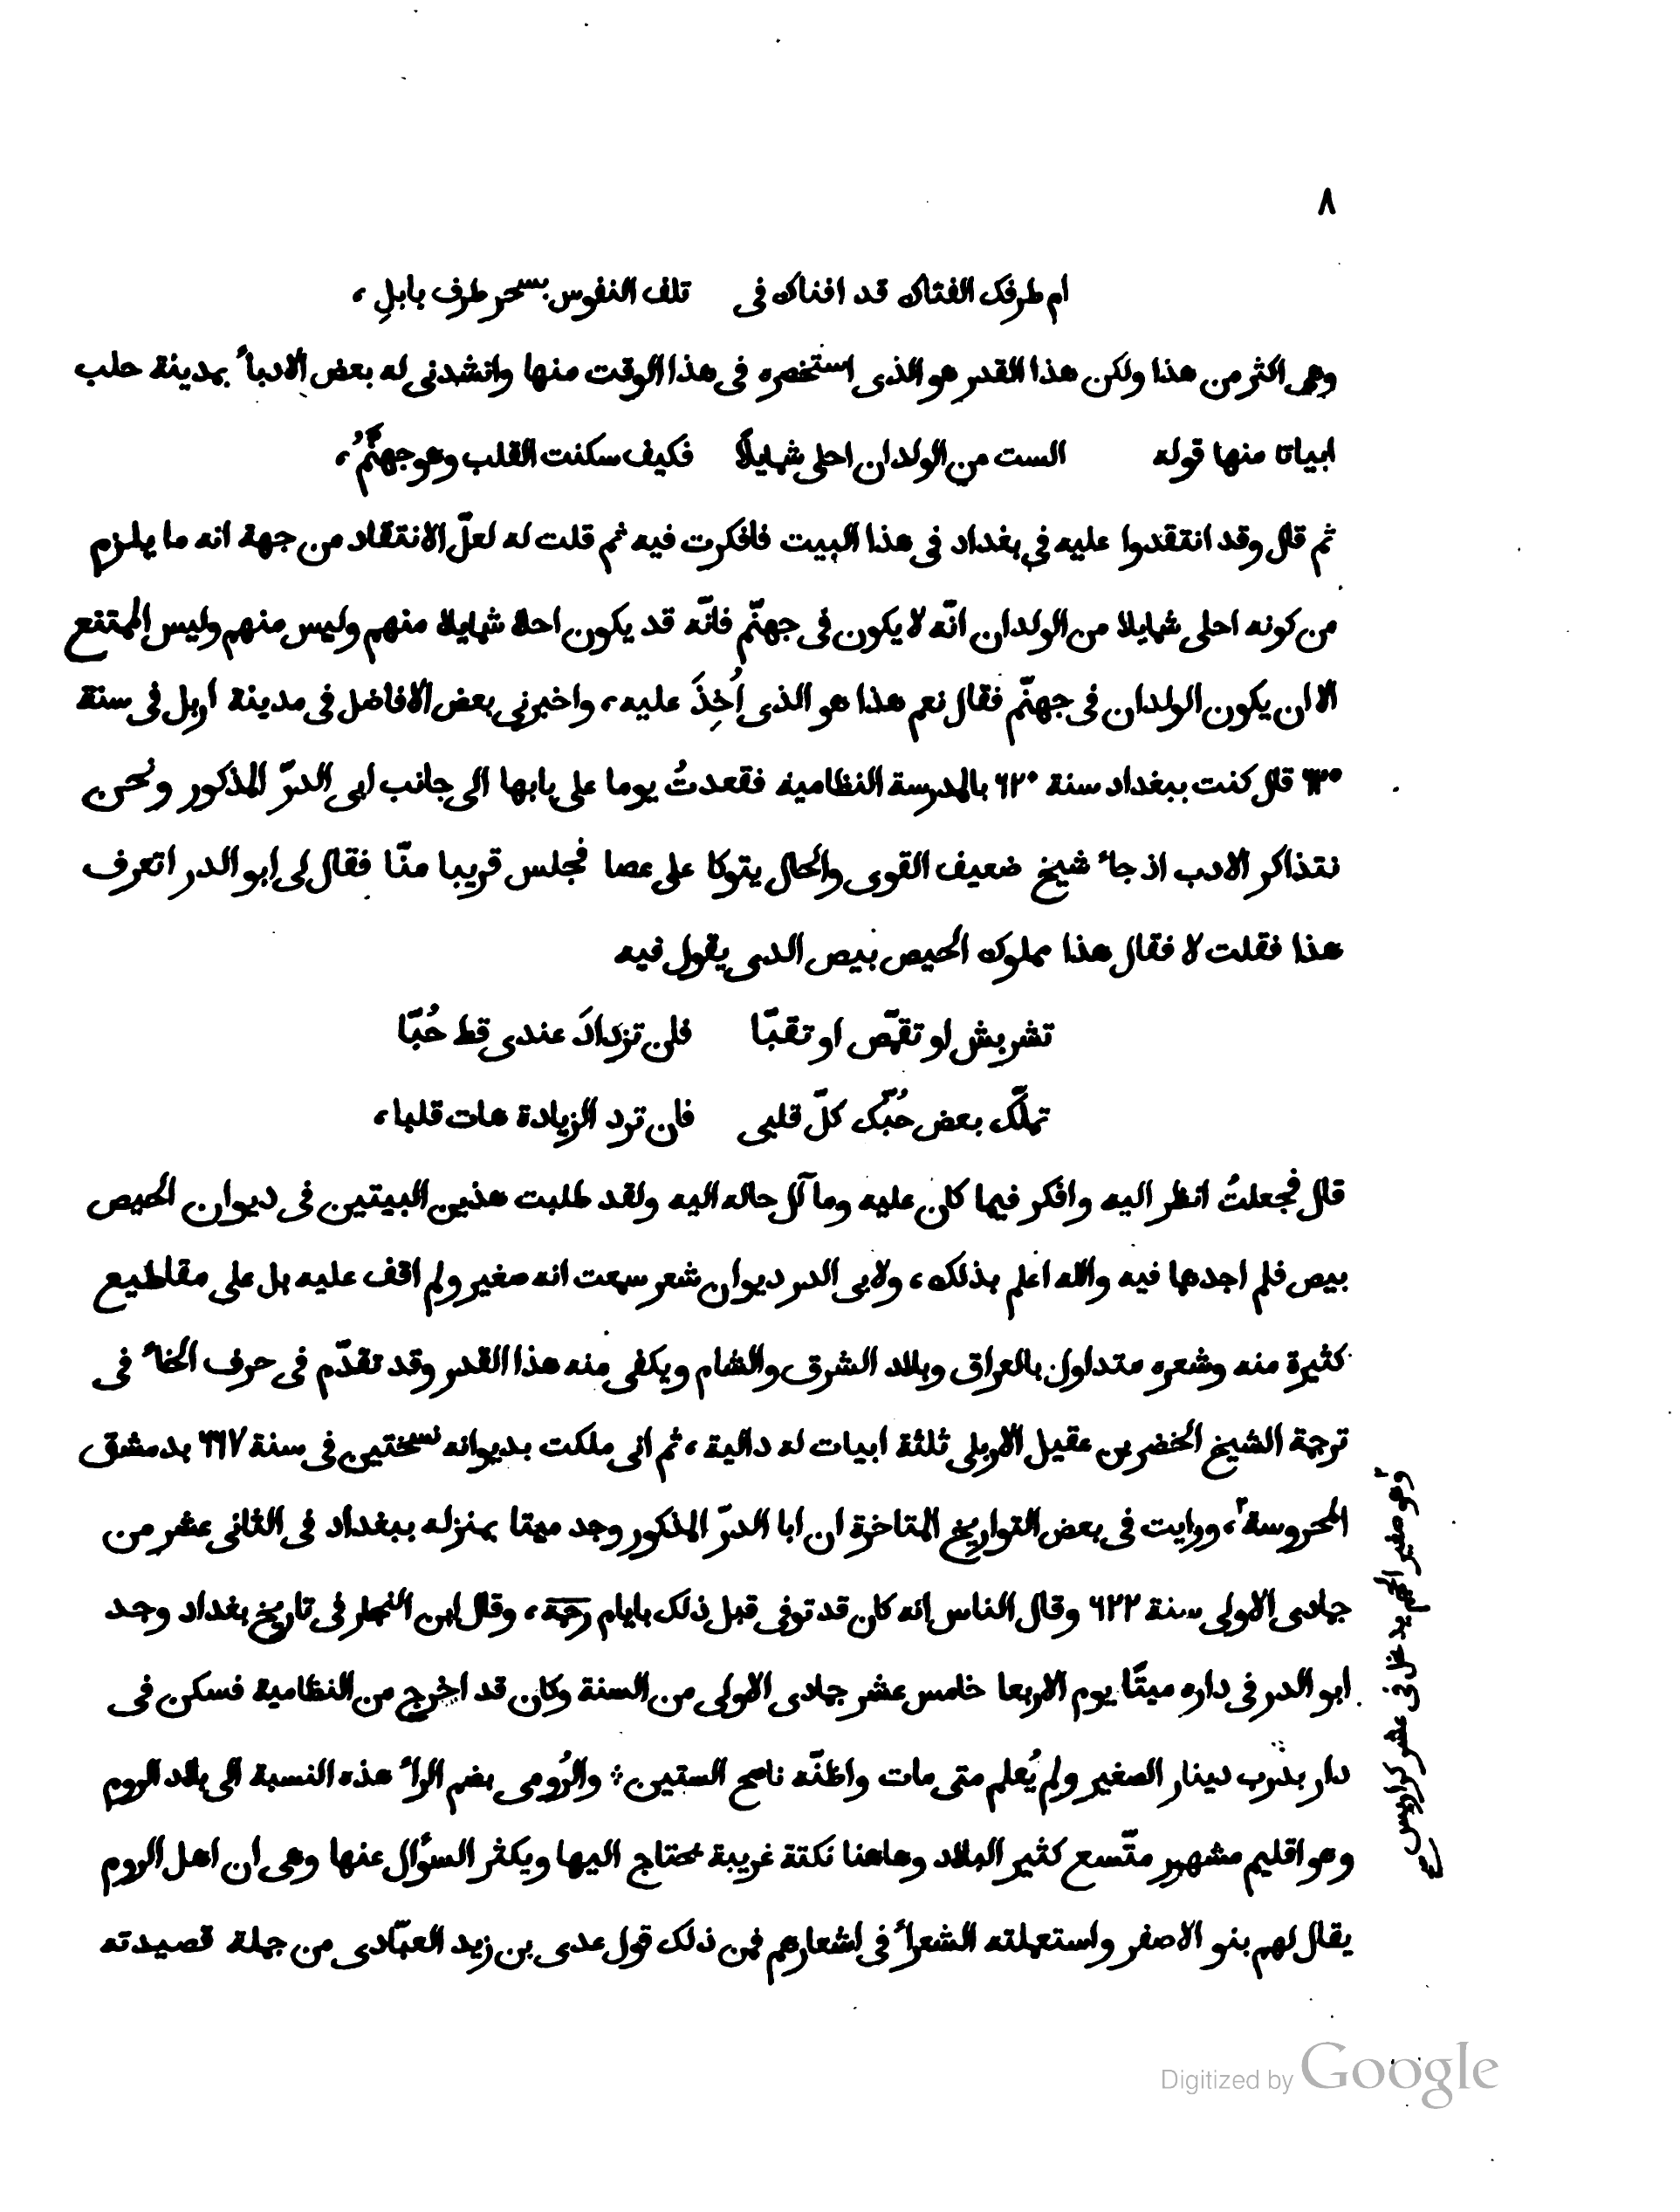 ٨
ام طرفك الفتاك قد افناك فى تلف النفوس بسحر طرف بابلِ،
وهى اكثر من هذا ولكن هذا القدر هو الذى استحضره فى هذا الوقت منها وانشدنى له بعض الادبأ بمدينة حلب
ابياتا منها قوله الست من الولدان احلى شمايلًا فكيف سكنت القلب وهو جهنّمُ،
ثم قال وقد انتقدوا عليه فى بغداد فى هذا البيت فافكرت فيه ثم قلت له لعلّ الانتقاد من جهة انه ما يلزم
من كونه احلى شمايلا من الولدان انّه لا يكون فى جهنّم فانّه قد يكون احلا شمايلا منهم وليس منهم وليس الممتنع
الا ان يكون الولدان فى جهنّم فقال نعم هذا هو الذى اُخِذَ عليه، واخبرنى بعض الافاضل فى مدينة اربل فى سنة
قال كنت ببغداد سنة ٦٢٠ بالمدرسة النظامية فقعدتُ يوما على بابها الى جانب ابى الدرّ المذكور ونحن
نتذاكر الادب اذ جأ شيخ ضعيف القوى والحال يتوكا على عصا فجلس قريبا منّا فقال لى ابو الدر اتعرف
هذا فقلت لا فقال هذا مملوك الحيص بيص الدى يقول فيه
تشربش او تقمّص او تقبّا فلن تزدادَ عندى قط حُبّا
تملّك بعض حُبّك كلّ قلبى فان ترد الزيادة هات قلبا،
قال فجعلتُ انظر اليه وافكر فيما كان عليه وما آل حاله اليه ولقد طلبت هذين البيتين فى ديوان الحيص
بيص فلم اجدها فيه والله اعلم بذلك، ولابى الدر ديوان شعر سمعت انه صغير ولم اقف عليه بل على مقاطيع
كثيرة منه وشعره متداول بالعراق وبلاد الشرق والشام ويكفى منه هذا القدر وقد تقدّم فى حرف الخأ فى
ترجمة الشيخ الخضر بن عقيل الاربلى ثلثة ابيات له دالية، ثم انى ملكت بديوانه نسختين فى سنة ٦٦٧ بدمشق
المحروسة٢، ورايت فى بعض التواريخ المتاخرة ان ابا الدرّ المذكور وجد ميتا بمنزله ببغداد فى الثانى عشر من
جمادى الاولى سنة ٦٢٢ وقال الناس انه كان قد توفى قبل ذلك بايام رحمة، وقال ابن النجار فى تاريخ بغداد وجد
ابو الدر فى داره ميتًا يوم الاربعا خامس عشر جمادى الاولى من السنة وكان قد اخرج من النظامية فسكن فى
دار بدرب دينار الصغير ولم يُعلم متى مات واظنّه ناهح الستين ؛ والرُومى بضم الرأ هذه النسبة الى بلاد الروم
وهو اقليم مشهور متّسع كثير البلاد وهاهنا نكتة غريبة يحتاج اليها ويكثر السوٴال عنها وهى ان اهل الروم
يقال لهم بنو الاصفر واستعملته الشعرأ فى اشعارهم فمن ذلك قول عدى بن زيد العبّادى من جملة قصيدته
٢وهو صغير الحجم يدخل فى عشر كراريس
Digitized by Google